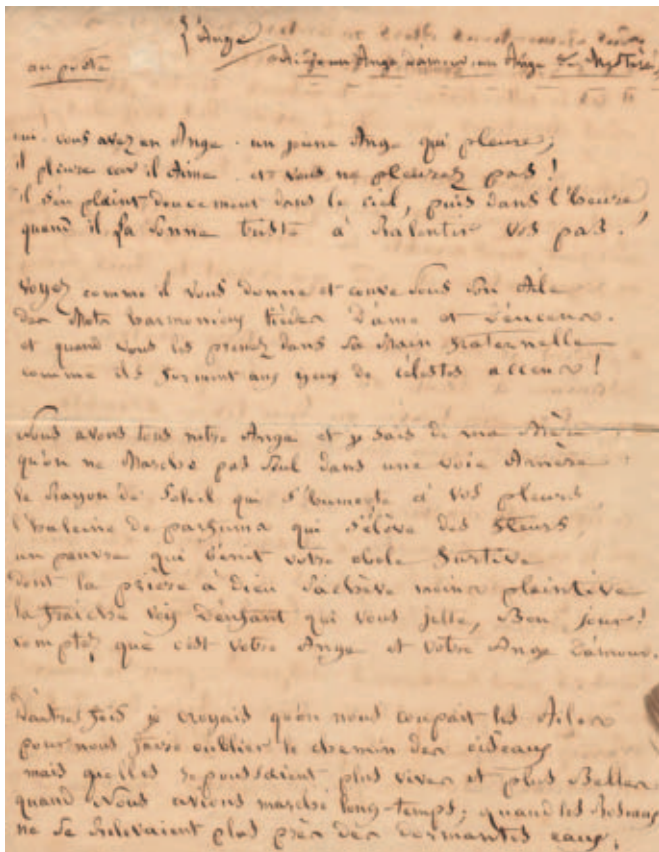 L'Ange
au poète
un Ange d'amour, un Ange de
oui. vous avez un Ange. un jeune Ange qui pleure;
il pleure car il Aime. et vous ne pleurez pas!
il s'en plaint doucement dans le ciel, puis dans l'heure,
quand il la sonne triste à Ralentir vos pas.
Voyez comme il vous donne et couve sous son Aile
des Mots harmonieux tièdes d'âme et d'encens.
et quand vous les prenez dans sa Main fraternelle
comme ils forment aux yeux de célestes accens!
Nous avons tous notre Ange et je sais de ma Mère
qu'on ne Marche pas seul dans une voie Amère
le Rayon de soleil qui s'humecte à vos pleurs,
l'haleine de parfums qui s'élève des fleurs,
un pauvre qui bénit votre obole furtive
dont la prière à dieu s'achève moins plaintive
la fraîche voix d'enfant qui vous jette, Bon jour!
comptez que c'est votre Ange et votre Ange d'amour.
D'autres fois je croyais qu'on nous coupait les Ailes
pour nous faire oublier le chemin des oiseaux
mais qu'elles repoussaient plus vives et plus Belles
quand Nous avions marché long-temps; quand les Roseaux
ne se Relevaient plus près des dormantes eaux,